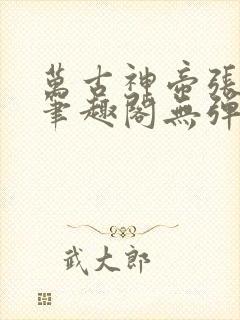 萬古神帝張
筆趣閣無彈
武大郎